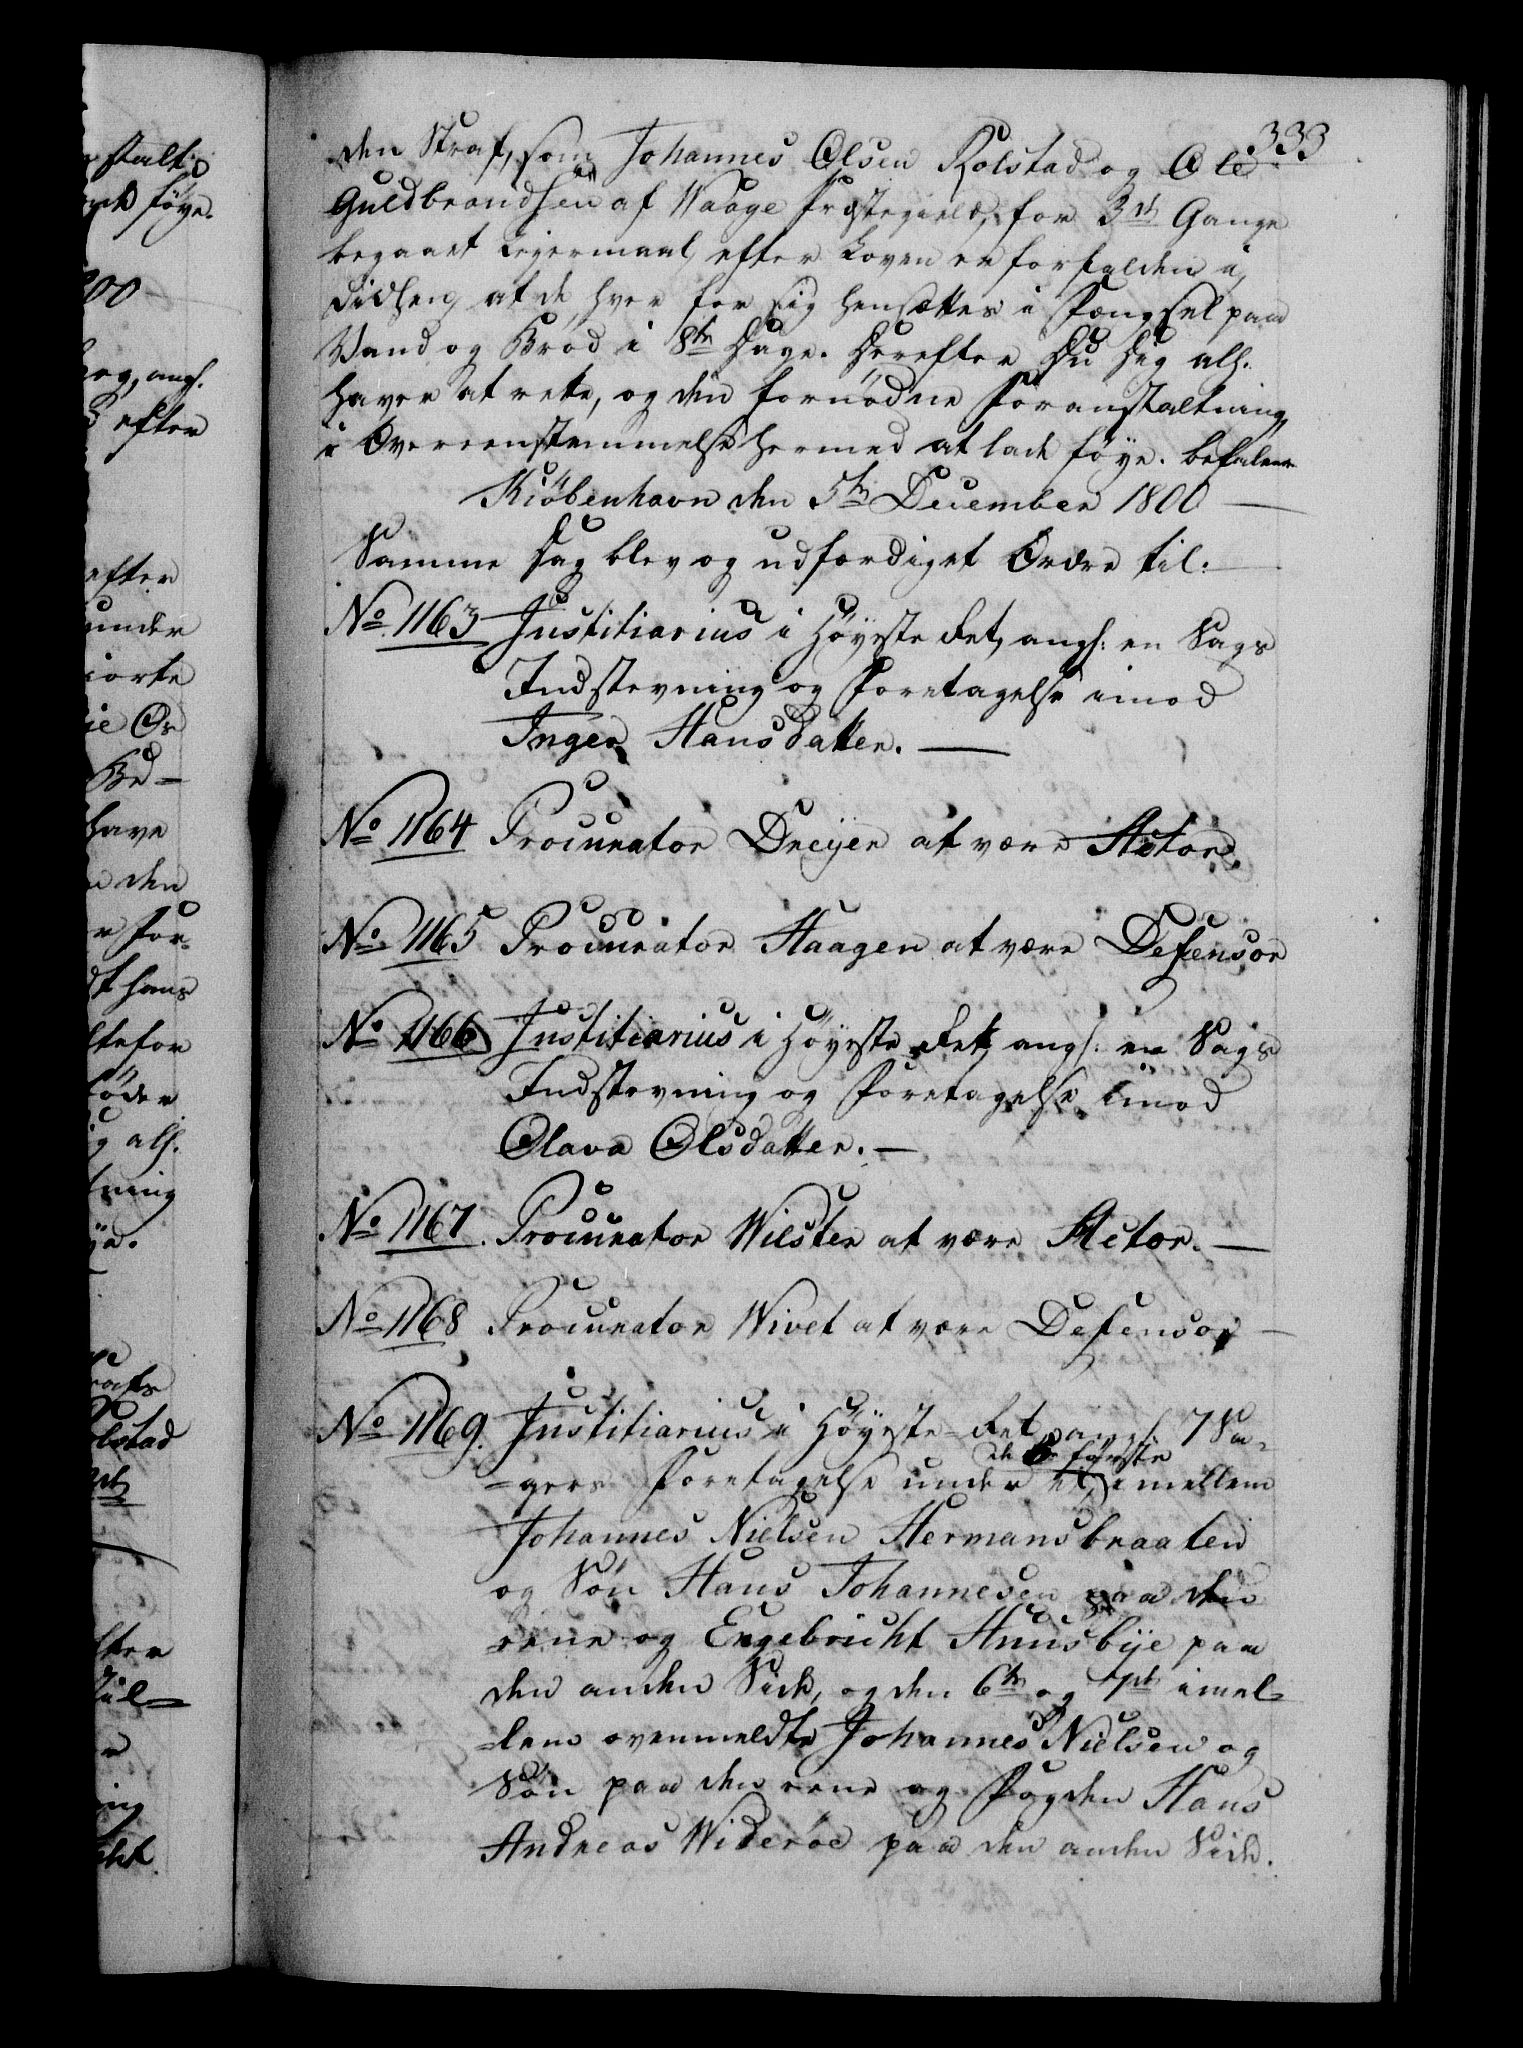 333
den Straf, som Johannes Olsen Rolstad og Ole
Guldbrandsen af Waage Præstegield, for 3de Gange
begaaet Leyermaal, efter Loven er forfalden i,
saaledes, at de hver for sig hensættes i Fængsel paa
Vand og Brød i 8te Dage. Derefter Du Dig alh.
haver at rette, og den fornødne Foranstaltning,
i Overeensstemmelse hermed at lade føye. befalens
Kiöbenhavn den 5te December 1800
Samme Dag blev og udfærdiget Ordre til:
No 1163 Justitiarius i Høyeste Ret, angl: en Sags
Indstevning og Foretagelse imod
Inger Hansdatter.
No 1164 Procurator Dreyer at være Actor.
No 1165 Procurator Haagen at være Defensor
No 1166 Justitiarius i Høyeste Ret, angl: en Sags
Indstevning og Foretagelse imod
Olava Olsdatter.
No 1167. Procurator Wilster at være Actor.
No 1168 Procurator Wivet at være Defensor
No 1169. Justitiarius i Høyeste-Ret, angl. 7 Sa-
de første
-gers Foretagelse under et, imellem
Johannes Nielsen Hermansbraaten
og Søn Hans Johannesen paa den
eene og Engebricht Huusbÿe paa
den anden Side, og den 6te og 7de imel-
-lem ovenmeldte Johannes Nielsen og
Søn paa den eene og Fogden Hans
Andreas Widerøe paa den anden Side.
stalt
föye.
200
angl.
efter
efter
under
giorte
Or
Be-
have
den
For-
hans
alh.
tning
Rolstad